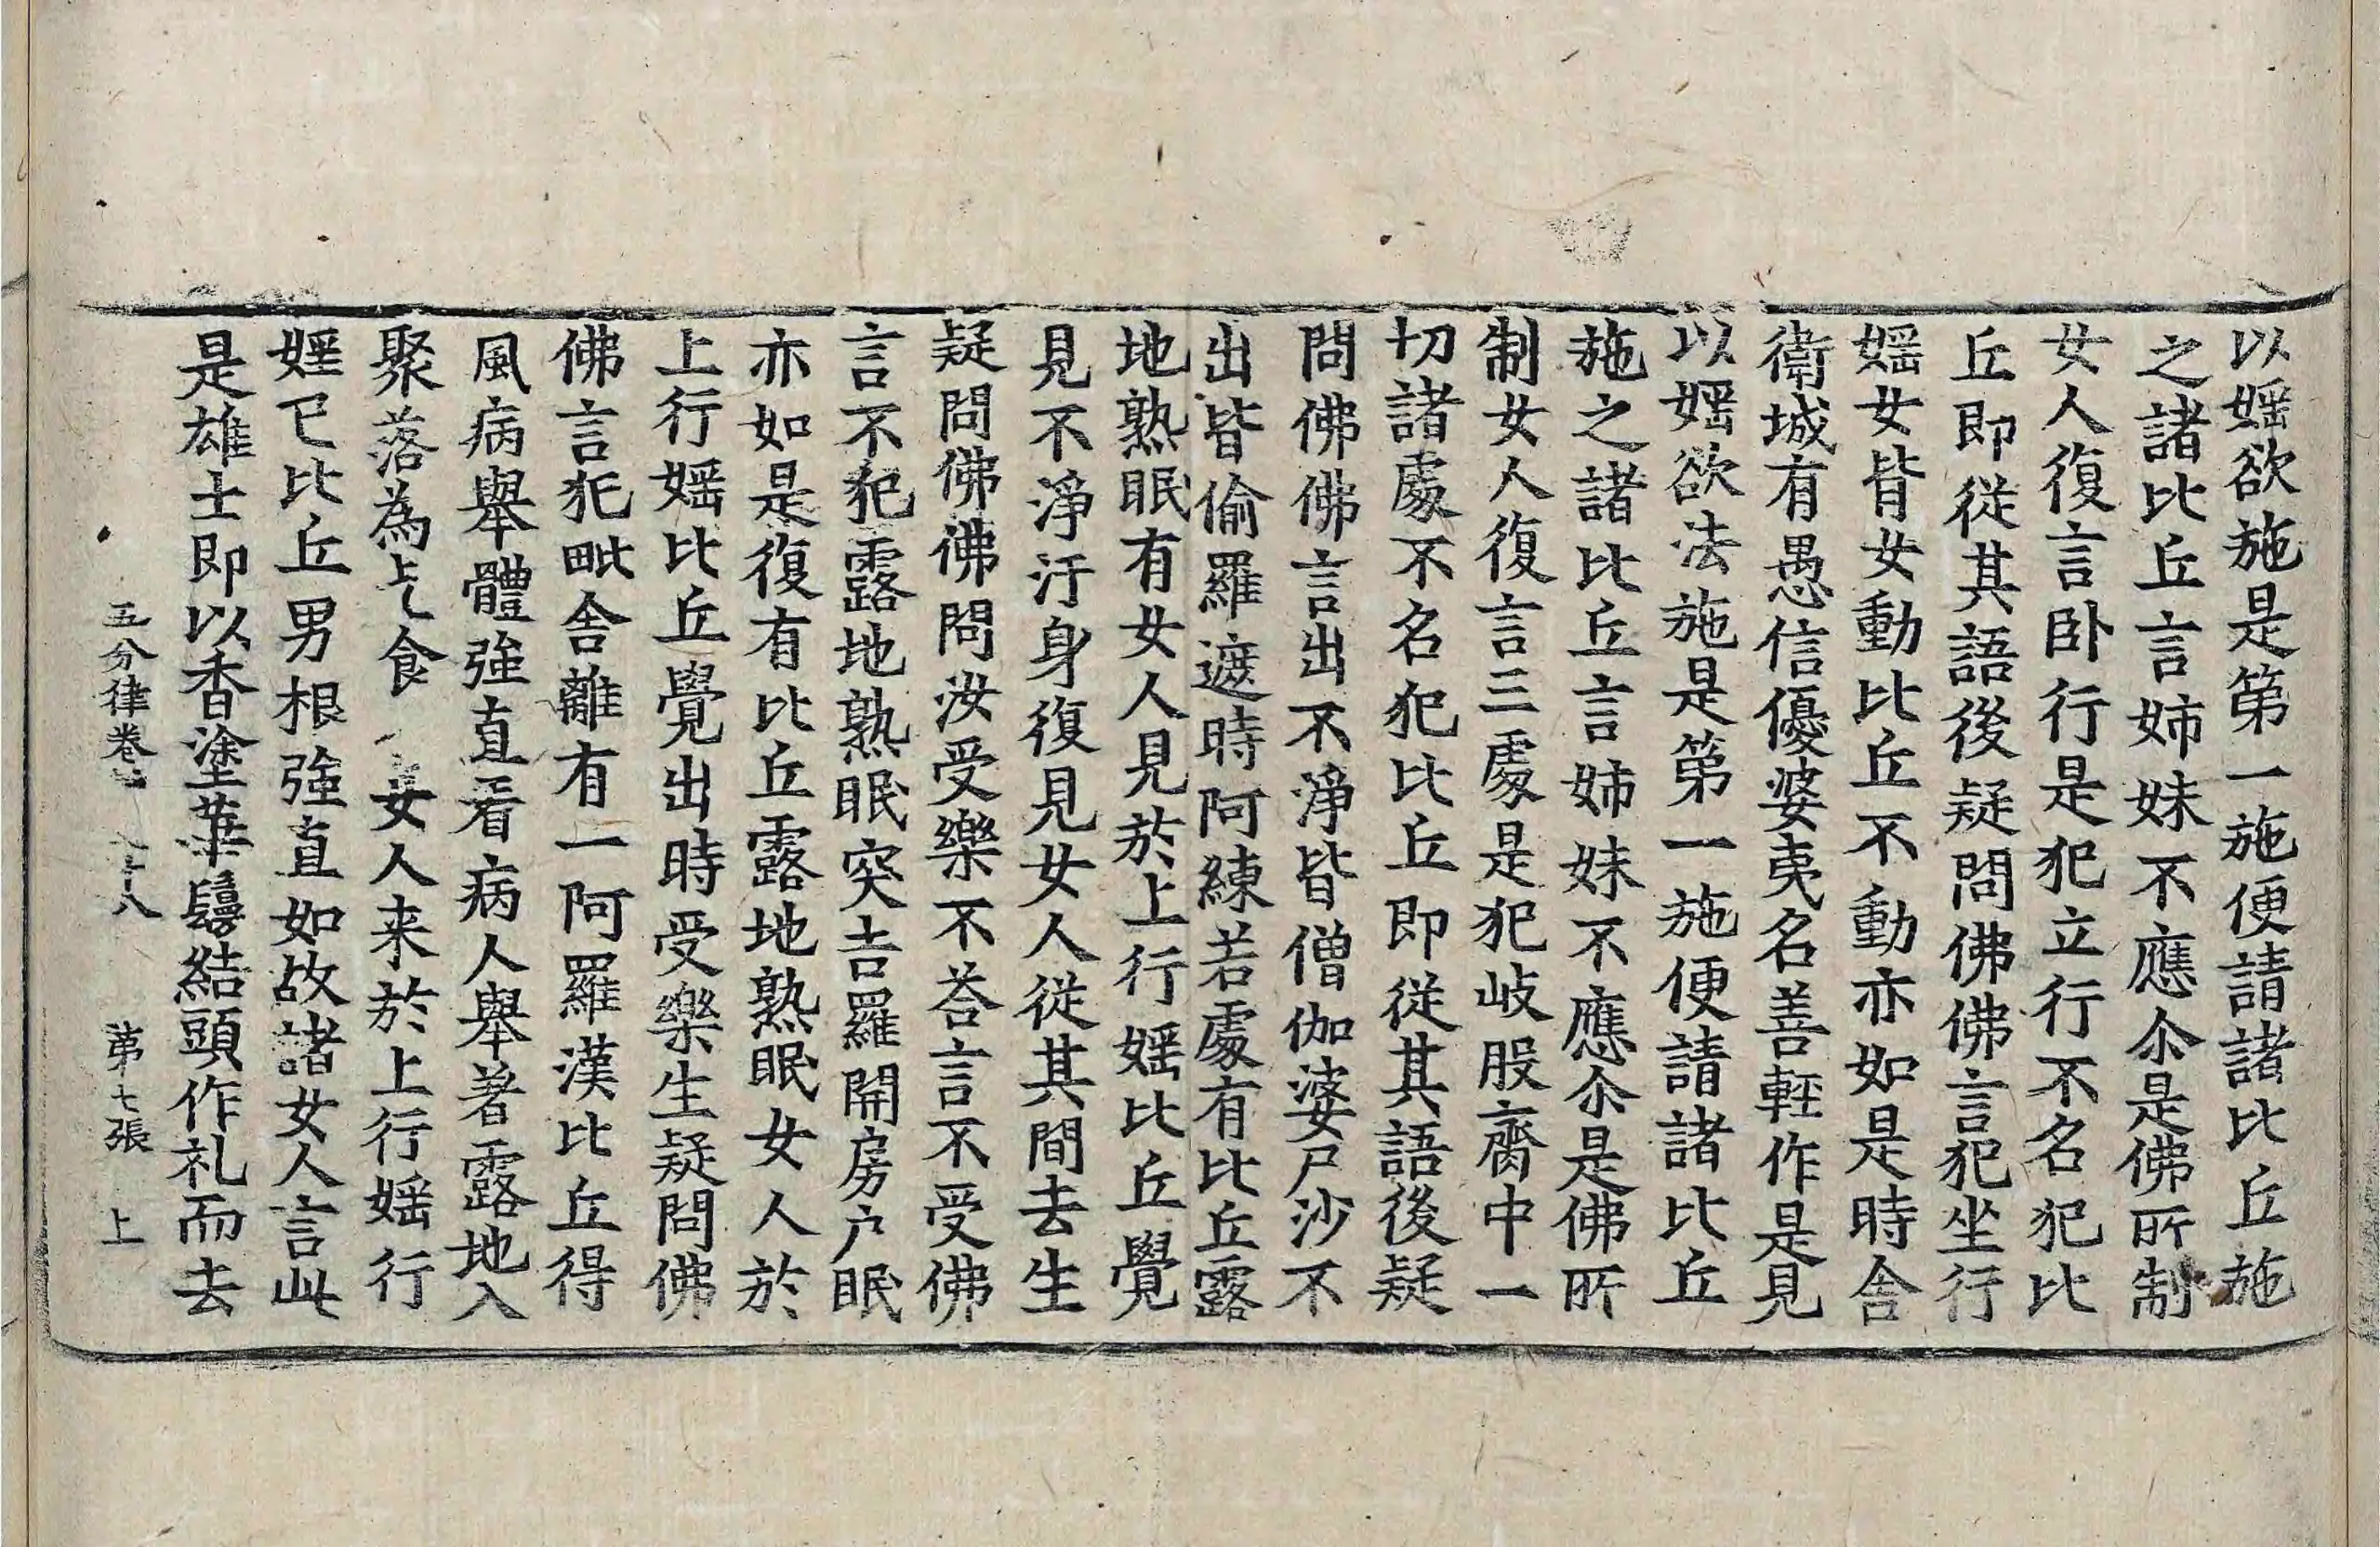 以婬欲施是第一施便請諸比丘施
之諸比丘言姉妹不應尒是佛所制
女人復言卧行是犯立行不名犯比
丘即從其語後疑問佛佛言犯坐行
婬女皆女動比丘不動亦如是時舍
衛城有愚信優婆夷名善輊作是見
以婬欲法施是第一施便請諸比丘
施之諸比丘言姉妹不應尒是佛所
制女人復言三處是犯岐股齎中一
切諸處不名犯比丘即從其語後疑
問佛佛言出不淨皆僧伽婆尸沙不
出皆偷羅遮時阿練若處有比丘露
地熟眠有女人見於上行婬比丘覺
見不淨汙身復見女人從其間去生
疑問佛佛問汝受樂不荅言不受佛
言不犯露地熟眠突吉羅開房户眠
亦如是復有比丘露地熟眠女人於
上行婬比丘覺出時受樂生疑問佛
佛言犯毗舍離有一阿羅漢比丘得
風病舉體強直看病人舉著露地入
聚落為乞食女人来於上行婬行
婬已比丘男根強直如故諸女人言此
是雄士即以香塗華鬘結頭作礼而去
五分律卷 十八 第七張 上